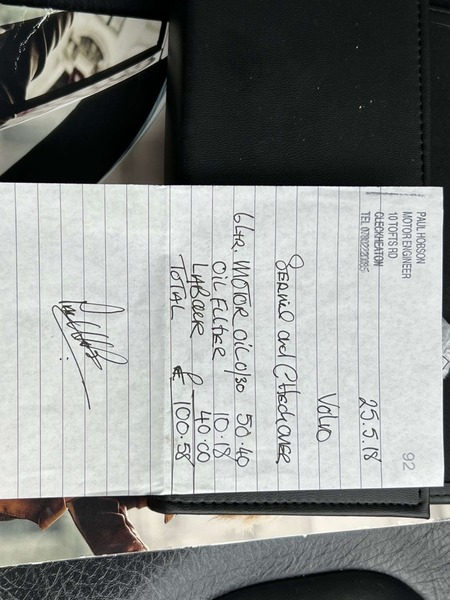 92
PAUL HOBSON
MOTOR ENGINEER
10 TOFTS RD
CLECKHEATON
25.5.18
Volvo
Service and Check over
6 Ltr. MOTOR OIL 0/30 50.40
OIL FILTER 10.18
LABOUR 40.00
TOTAL £ 100.58